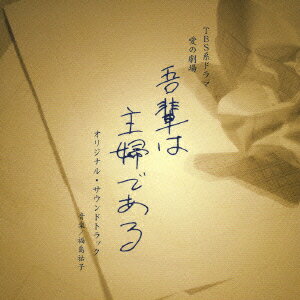 TBS系ドラマ
愛の劇場
吾輩は
主婦である
オリジナル・サウンドトラック
音楽／福島祐子